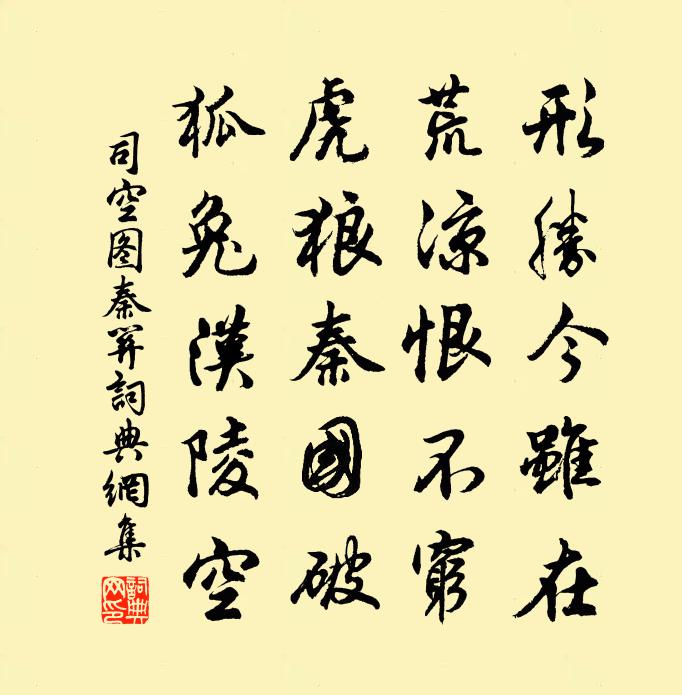 形勝今雖在
荒涼恨不窮
虎狼秦國破
狐兔漢陵空
司空图秦關詞典網集
詞典
网印